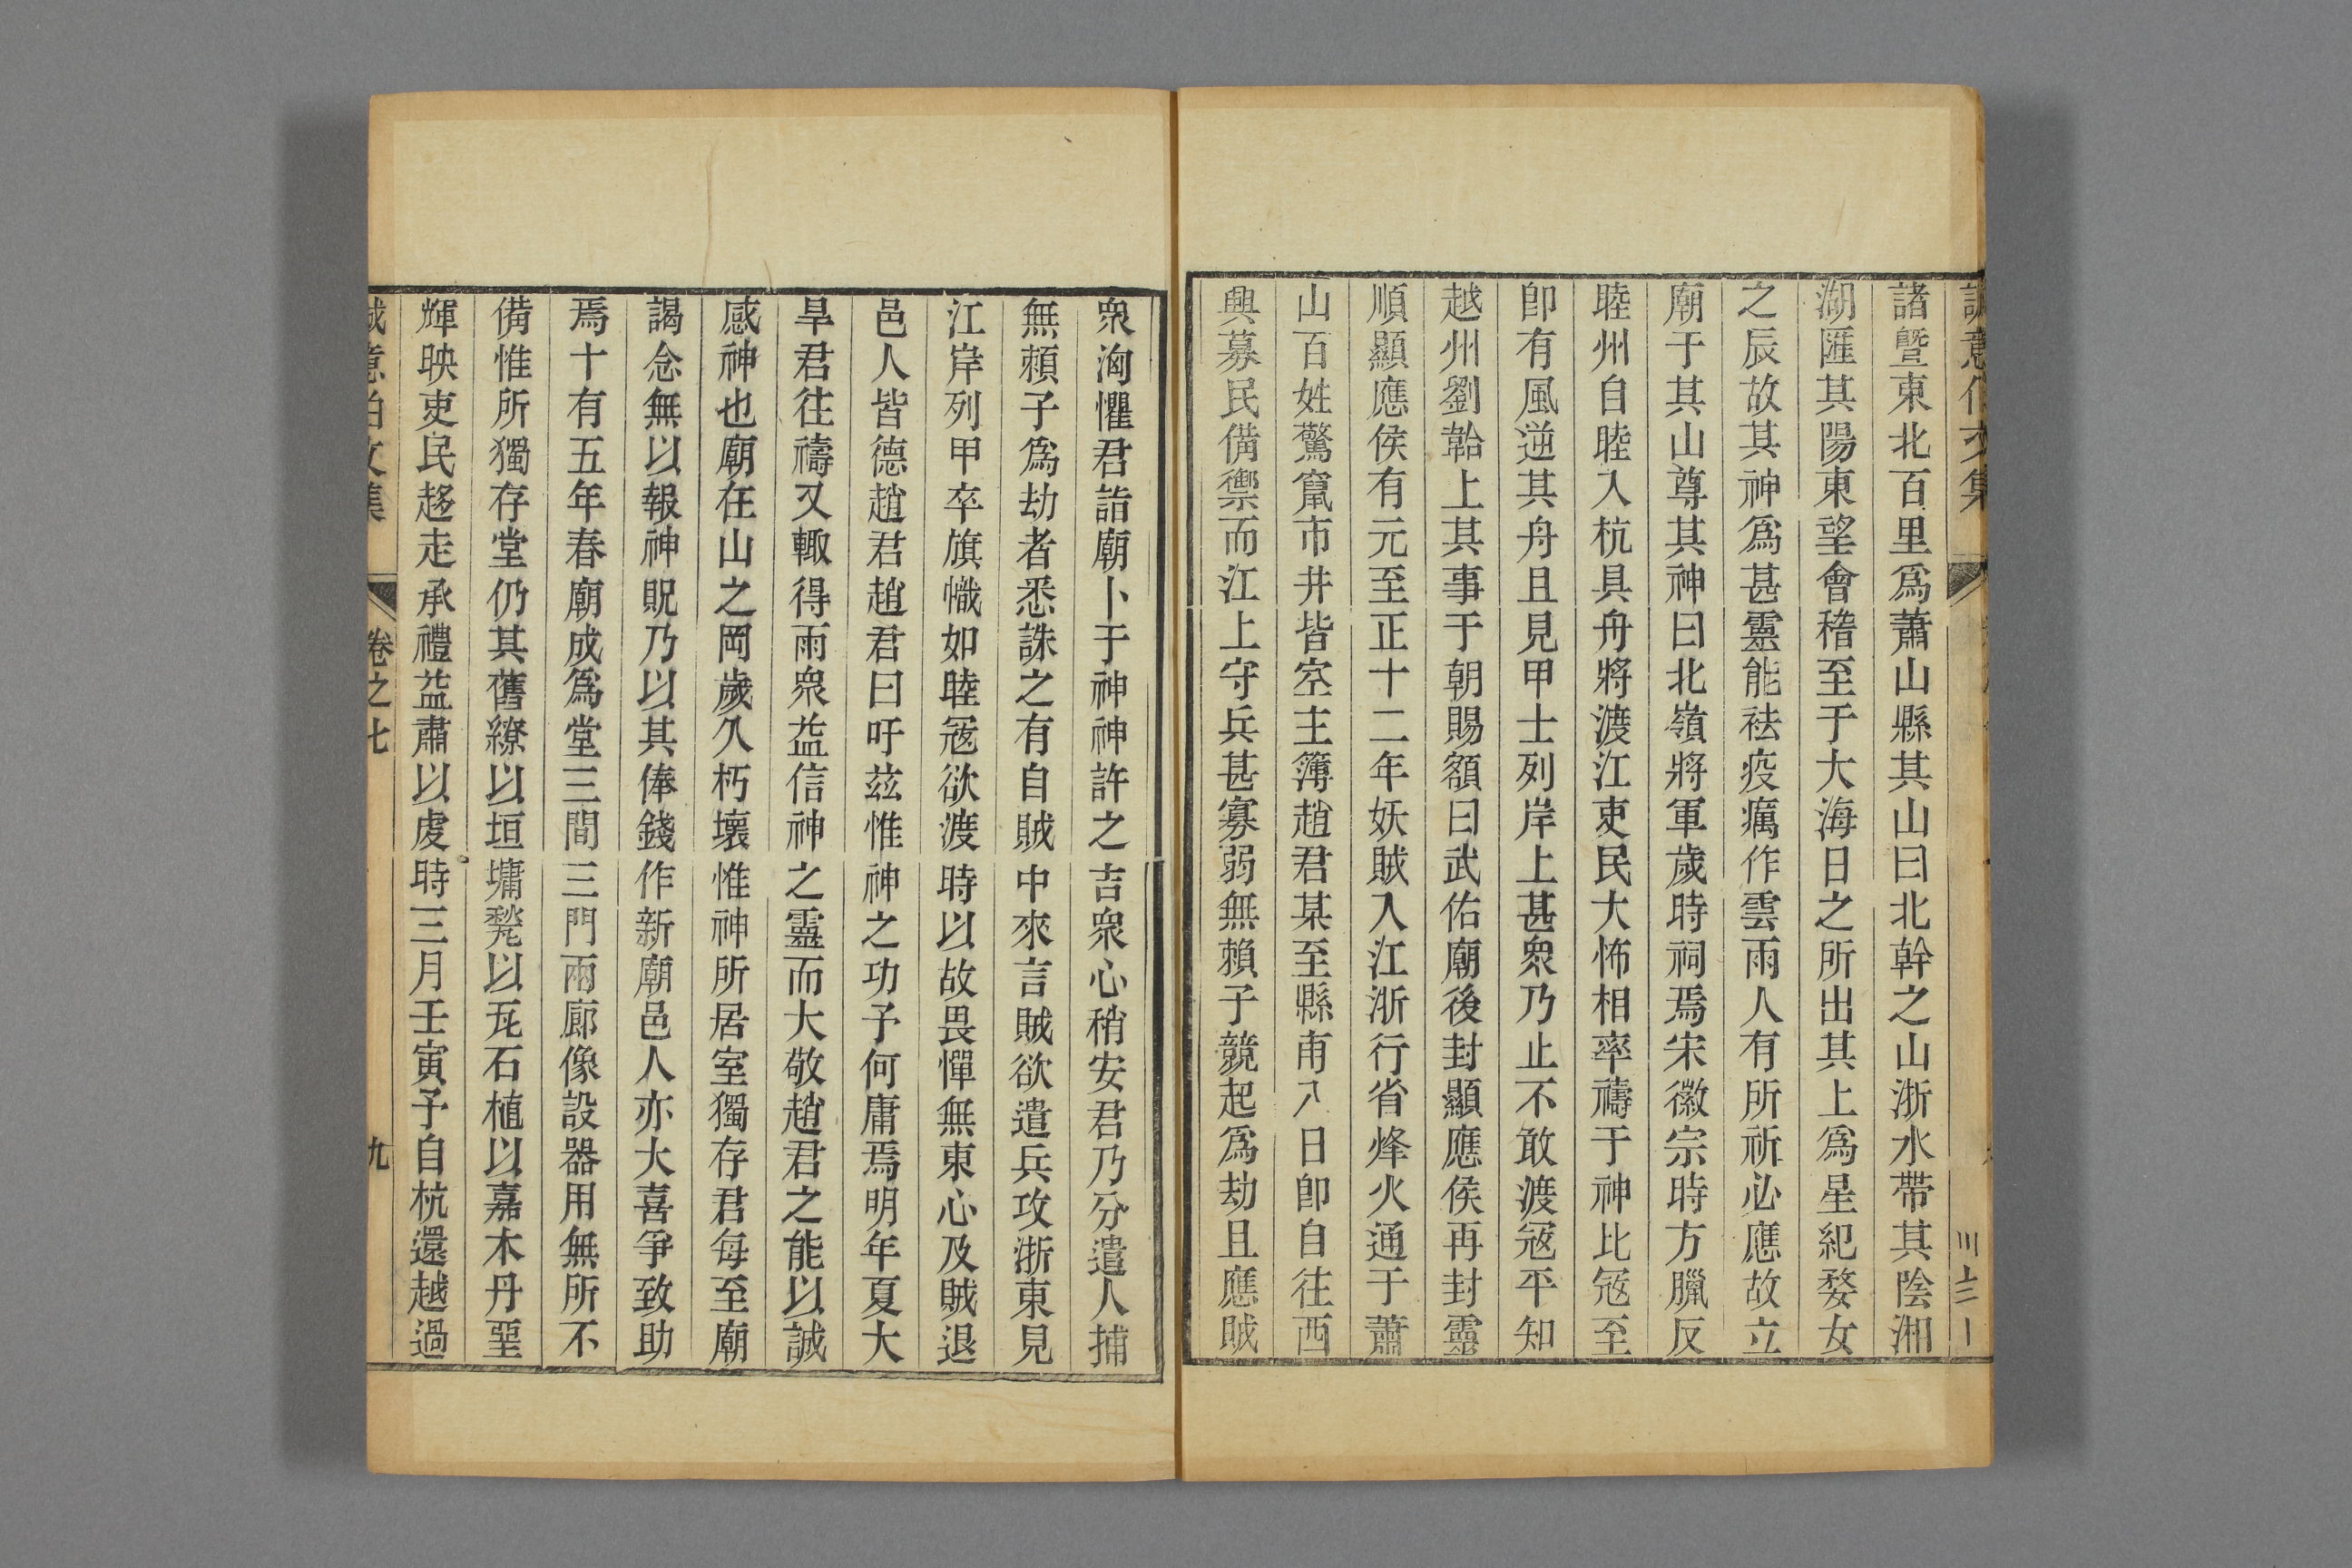 誠意伯文集
諸曁東北百里爲蕭山縣其山曰北幹之山浙水帶其陰湘
湖匯其陽東望會稽至于大海日之所出其上爲星紀婺女
之辰故其神爲甚靈能祛疫癘作雲雨人有所祈必應故立
廟于其山尊其神曰北嶺將軍歲時祠焉宋徽宗時方臘反
睦州自睦入杭具舟將渡江吏民大怖相率禱于神比冦至
卽有風逆其舟且見甲士列岸上甚衆乃止不敢渡冦平知
越州劉韐上其事于朝賜額曰武佑廟後封顯應侯再封靈
順顯應侯有元至正十二年妖賊入江浙行省烽火通于蕭
山百姓驚竄市井皆空主簿趙君某至縣甫八日卽自往西
興募民備禦而江上守兵甚寡弱無賴子競起爲劫且應賊
衆洶懼君詣廟卜于神神許之吉衆心稍安君乃分遣人捕
無賴子爲劫者悉誅之有自賊中來言賊欲遣兵攻浙東見
江岸列甲卒旗幟如睦冦欲渡時以故畏憚無東心及賊退
邑人皆德趙君趙君曰吁兹惟神之功予何庸焉明年夏大
旱君往禱又輙得雨衆益信神之靈而大敬趙君之能以誠
感神也廟在山之岡歲久朽壞惟神所居室獨存君每至廟
謁念無以報神貺乃以其俸錢作新廟邑人亦大喜爭致助
焉十有五年春廟成爲堂三間三門兩廊像設器用無所不
備惟所獨存堂仍其舊繚以垣墉甃以瓦石植以嘉木丹堊
輝映吏民趍走承禮益肅以虔時三月壬寅予自杭還越過
誠意伯文集 卷之七 九